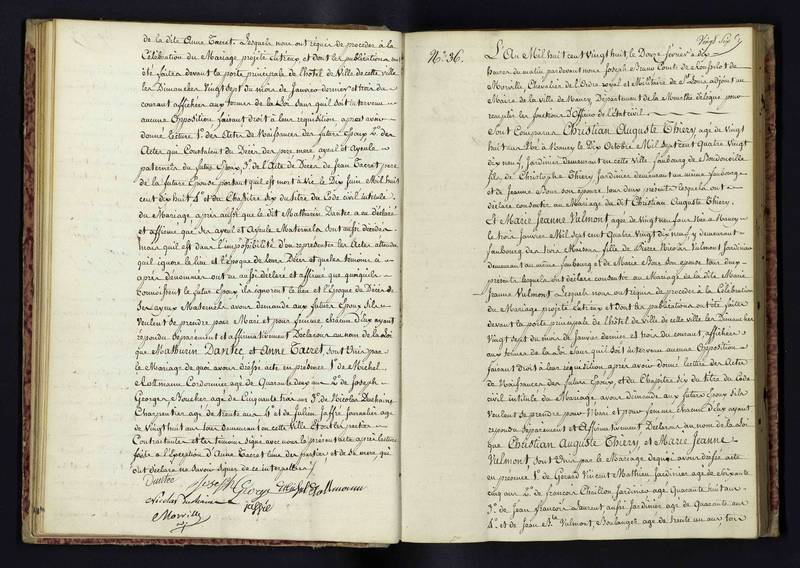 de la dite Anne Tacret. Lesquels nous ont requis de procéder à la
Célébration du Mariage projeté entr'eux et dont les publications ont
été faites devant la porte principale de l'hôtel de Ville de cette ville
les Dimanches Vingt sept du mois de janvier dernier et trois du
courant affichées aux termes de la Loi sans qu'il soit intervenu
aucune Opposition faisant droit à leur requisition après avoir
donné lecture 1º des Actes de Naissances des futurs Epoux 2º des
Actes qui Constatent les Décès des père mère ayeul et Ayeule
paternels du futur Epoux 3º de l'acte de Décès de Jean Tacret père
de la future Epouse portant qu'il est mort à Vic le Dix Juin Mil huit
cent dix huit 4º et du Chapitre Six du titre du Code civil intitulé
du Mariage après aussi que le dit Mathurin Dantec a déclaré
et affirmé que ses ayeul et Ayeule Maternels sont aussi décédés
mais qu'il est dans l'impossibilité d'en représenter les Actes attendu
qu'il ignore le lieu et l'époque de leurs Décès et que les témoins ci
après dénommés ont aussi déclaré et affirmé que quoiqu'ils
connoissent le futur Epoux ils ignorent le lieu et l'époque du Décès de
ses ayeux Maternels avons demandé aux futurs Epoux s'ils
veulent se prendre pour Mari et pour femme chacun d'eux ayant
répondu Séparément et affirmativement Déclarons au nom de la Loi
que Mathurin Dantec et Anne Tacret, sont Unis par
le Mariage de quoi avons dressé acte en présence 1º de Michel
Kollmann Cordonnier agé de Quarante deux ans 2º de Joseph
Georges Boucher agé de Cinquante trois ans 3º de Nicolas Duchaine
Charpentier agé de trente ans 4º et de Julien Jaffré Journalier agé
de Vingt huit ans tous demeurant en cette Ville Et ont les parties
Contractantes et les témoins signé avec nous le présent acte après lecture
faite à l'Exception d'Anne Tacret l'une des parties et de sa mère qui
ont déclaré ne savoir signer de ce interpellées
Dantec Joseph George Michel Kollmann
Nicolas Duchaine Jaffré
Morville
Vingt Sept
Nº 36. L'An Mil huit cent Vingt huit, le Douze février à dix
heures du matin pardevant nous Joseph Beaux Comte de Loupilot de
Morville, Chevalier de l'Ordre royal et Militaire de St Louis, adjoint au
Maire de la Ville de Nancy, Département de la Meurthe délégué pour
remplir les fonctions d'Officier de l'Etat civil.
Sont Comparus Christian Auguste Thiery agé de Vingt
huit ans Né à Nancy le Dix Octobre Mil Sept cent Quatre Vingt
dix neuf, Jardinier demeurant en cette Ville faubourg de Boudonville
fils de Christophe Thiery Jardinier demeurant au même faubourg
et de Jeanne Bour son épouse tous deux présents lesquels ont
déclaré consentir au Mariage du dit Christian Auguste Thiery.
Et Marie Jeanne Valmont agée de Vingt neuf ans Née à Nancy
le trois Janvier Mil sept cent Quatre Vingt Dix neuf, y demeurant
faubourg des trois Maisons fille de Pierre Nicolas Valmont Jardinier
demeurant au même faubourg et de Marie Bour son épouse tous deux
présents lesquels ont déclaré consentir au Mariage de la dite Marie
Jeanne Valmont. Lesquels nous ont requis de procéder à la Célébration
du Mariage projeté entr'eux et dont les publications ont été faites
devant la porte principale de l'hôtel de Ville de cette ville les Dimanches
Vingt sept du mois de janvier dernier et trois du courant, affichées
aux termes de la Loi sans qu'il soit intervenu aucune Opposition
faisant droit à leur requisition après avoir donné lecture des Actes
de Naissances des futurs Epoux, et du Chapitre Six du titre du Code
civil intitulé du Mariage, avons demandé aux futurs Epoux s'ils
veulent se prendre pour Mari et pour femme chacun d'eux ayant
répondu Séparément et Affirmativement Déclarons au nom de la Loi
que Christian Auguste Thiery, et Marie Jeanne
Valmont, sont Unis par le Mariage de quoi avons dressé acte
en présence 1º de Gérard Vincent Mathieu Jardinier agé de Soixante
cinq ans 2º de francois Chuillon Jardinier agé Quarante huit ans
3º de Jean francois Laurent aussi Jardinier agé de Quarante ans
4º et de Jean Bte Valmont, Boulanger agé de trente un ans, tous